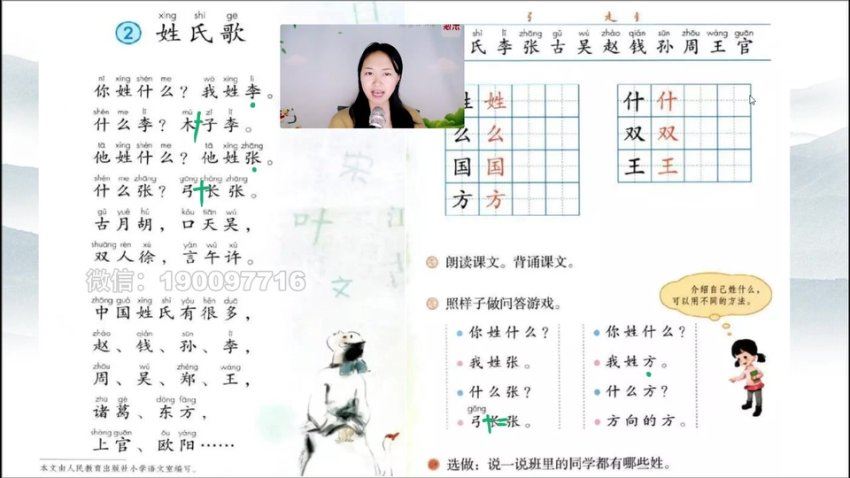 xìng shì gē
2 姓氏歌
nǐ xìng shén me wǒ xìng lǐ
你姓什么？我姓李。
shén me lǐ mù zǐ lǐ
什么李？木子李。
tā xìng shén me tā xìng zhāng
他姓什么？他姓张。
shén me zhāng gōng cháng zhāng
什么张？弓长张。
gǔ yuè hú kǒu tiān wú
古月胡，口天吴，
shuāng rén xú yán wǔ xǔ
双人徐，言午许。
微信：190097716
zhōng guó xìng shì yǒu hěn duō
中国姓氏有很多，
zhào qián sūn lǐ
赵、钱、孙、李，
zhōu wú zhèng wáng
周、吴、郑、王，
zhū gě dōng fāng
诸葛、东方，
shàng guān ōu yáng
上官、欧阳……
本文由人民教育出版社小学语文室编写。
宋
叶
江
文
shì lǐ zhāng gǔ wú zhào qián sūn zhōu wáng guān
氏李张古吴赵钱孙周王官
姓 姓
么 么
国 国
方 方
什 什
双 双
王 王
朗读课文。背诵课文。
照样子做问答游戏。
介绍自己姓什么，
可以用不同的方法。
你姓什么？
我姓张。
什么张？
gōng
弓长张。
你姓什么？
我姓方。
什么方？
方向的方。
选做：说一说班里的同学都有哪些姓。